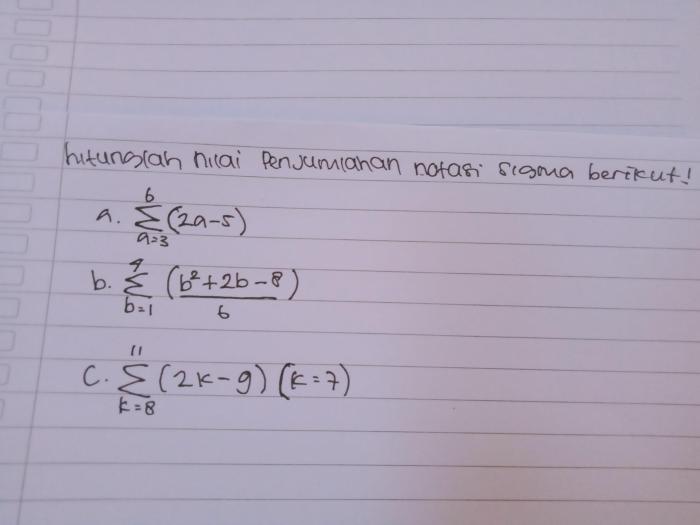 hitunglah nilai Penjumlahan notasi sigma berikut!
a. 6 Σ a=3 (2a-5)
b. 4 Σ b=1 (b²+2b-8)/6
C. 11 Σ k=8 (2k-9) (k=7)